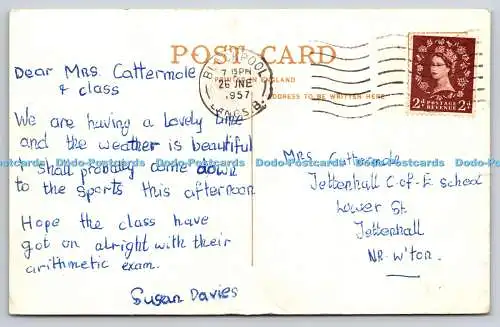 POST CARD
PRINTED IN ENGLAND
ADDRESS TO BE WRITTEN HERE
BLACKPOOL
7 15PM
26 JNE
1957
LANCS. B.
POSTAGE
REVENUE
2d 2d
Dear Mrs. Cattermole
& class
We are having a lovely time
and the weather is beautiful
I shall probally come down
to the sports this afternoon.
Hope the class have
got on alright with their
arithmetic exam.
Susan Davies
Mrs Cattermole
Tettenhall C-of-E school
Lower St
Tettenhall
NR W'ton.
Dodo-Postcards Dodo-Postcards Dodo-Postcards Dodo-Postcards Dodo-Postcards